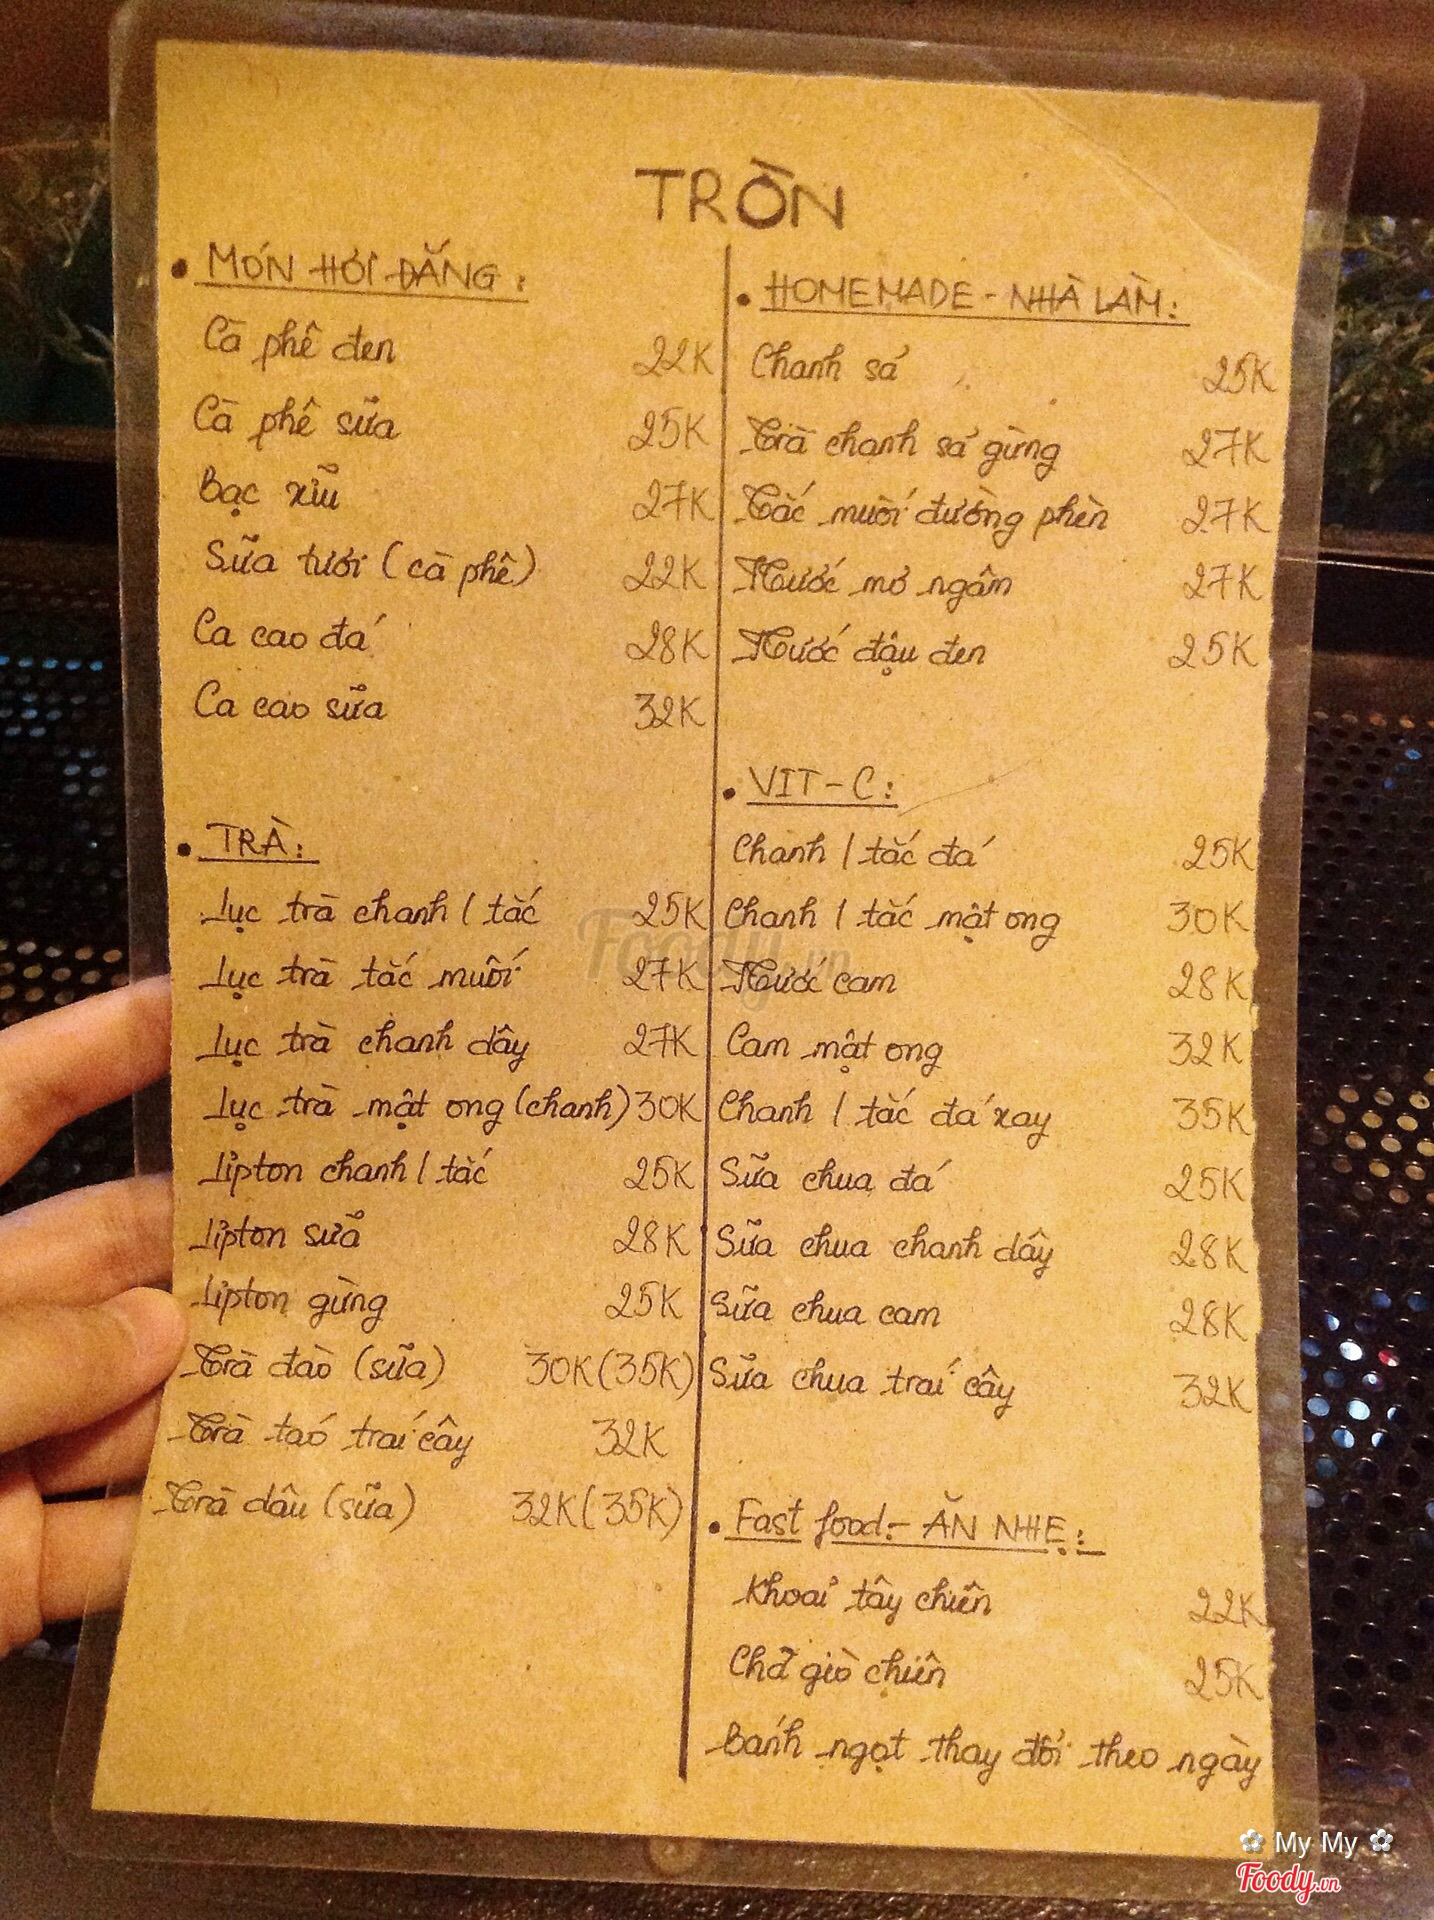 TRÒN
• MÓN HƠI ĐẮNG:
Cà phê đen 22K
Cà phê sữa 25K
Bạc xỉu 27K
Sữa tươi (cà phê) 22K
Ca cao đá 28K
Ca cao sữa 32K
• TRÀ:
Lục trà chanh / tắc 25K
Lục trà tắc muối 27K
Lục trà chanh dây 27K
Lục trà mật ong (chanh) 30K
Lipton chanh / tắc 25K
Lipton sữa 28K
Lipton gừng 25K
Trà đào (sữa) 30K (35K)
Trà táo trái cây 32K
Trà dâu (sữa) 32K (35K)
• HOMEMADE - NHÀ LÀM:
Chanh sả 25K
Trà chanh sả gừng 27K
Tắc muối đường phèn 27K
Nước mơ ngâm 27K
Nước đậu đen 25K
• VIT - C:
Chanh / tắc đá 25K
Chanh / tắc mật ong 30K
Nước cam 28K
Cam mật ong 32K
Chanh / tắc đá xay 35K
Sữa chua đá 25K
Sữa chua chanh dây 28K
Sữa chua cam 28K
Sữa chua trái cây 32K
• Fast food - ĂN NHẸ:
Khoai tây chiên 22K
Chả giò chiên 25K
Bánh ngọt thay đổi theo ngày
Foody.vn
My My
Foody.vn